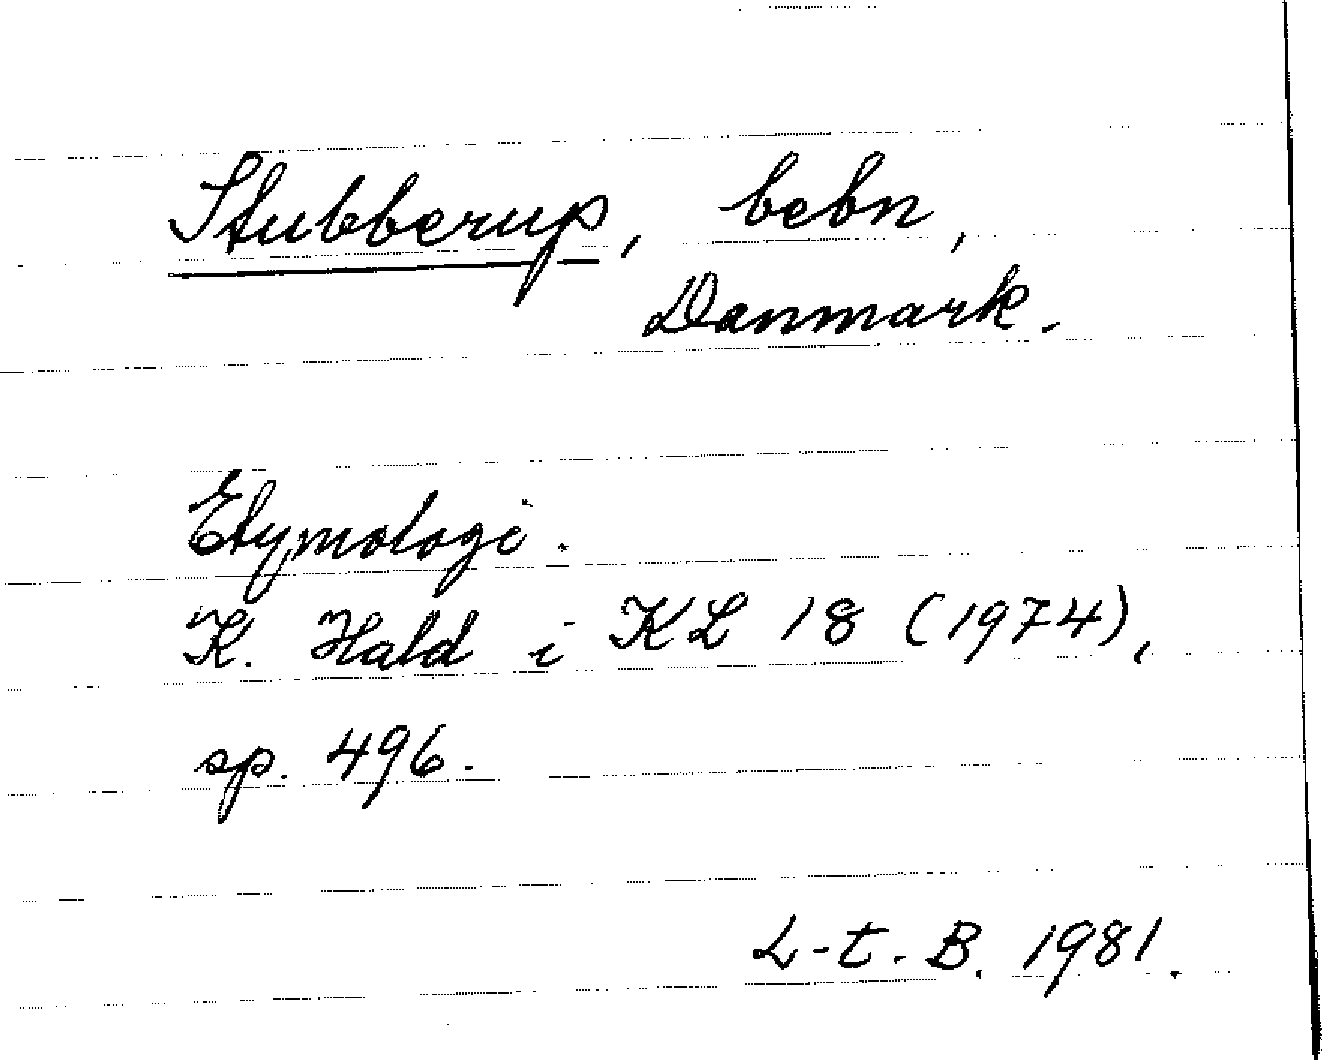 Stubberup, bebn,
Danmark.
Etymologi.
K. Hald i KL 18 (1974),
sp. 496.
L-t. B. 1981.